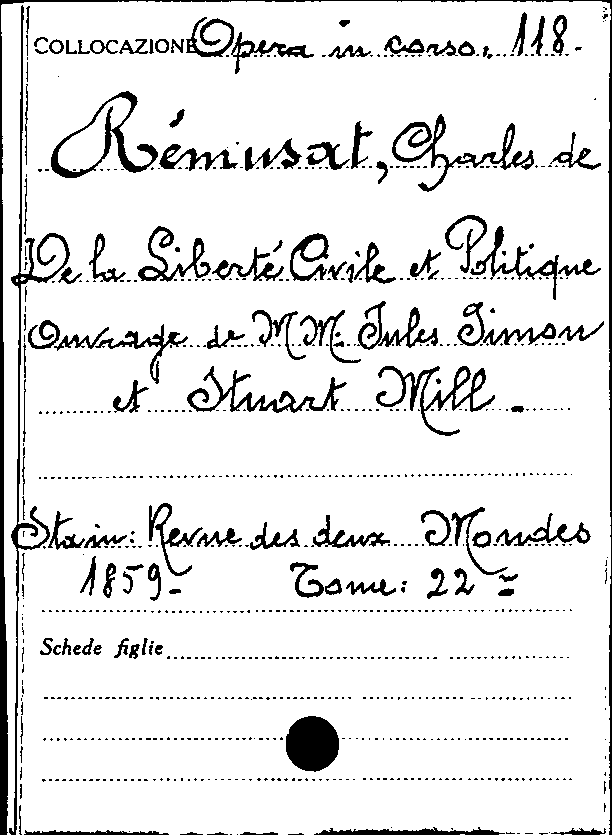 COLLOCAZIONE Opera in corso. 118.
Rémusat, Charles de
De la Liberté Civile et Politique
Ouvrage de M.M. Jules Simon
et Stuart Mill.
Sta in: Revue des deux Mondes
1859- Tome: 22
Schede figlie